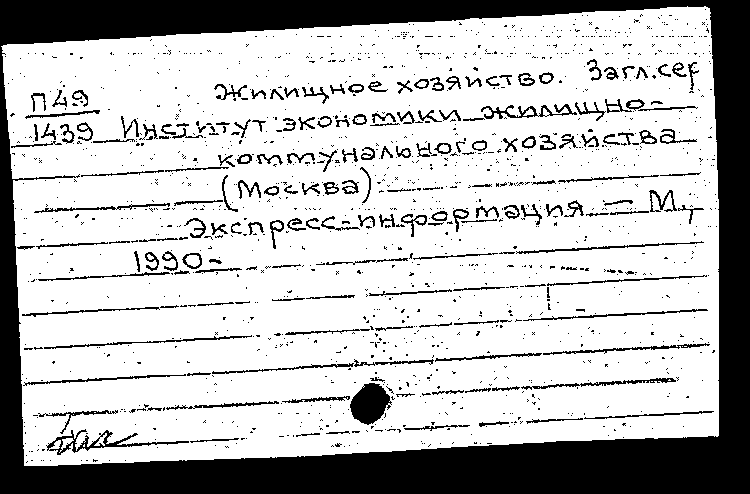 Жилищное хозяйство. Загл.сер
П49
1439 Институт экономики жилищно-
коммунального хозяйства
(Москва)
Экспресс-информация. — М.,
1990-